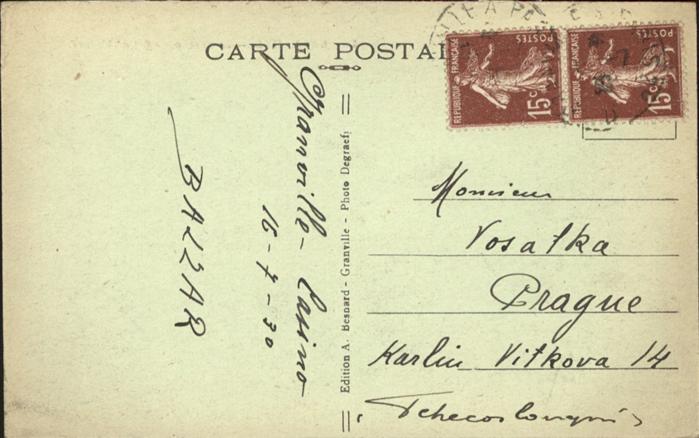 CARTE POSTAL
REPUBLIQUE FRANÇAISE
POSTES
15c
REPUBLIQUE FRANÇAISE
POSTES
15c
Granville - Casino
16-7-30
BALZAR
Edition A. Besnard - Granville - Photo Degraef
Monsieur
Vosatka
Prague
Karlin Vitkova 14